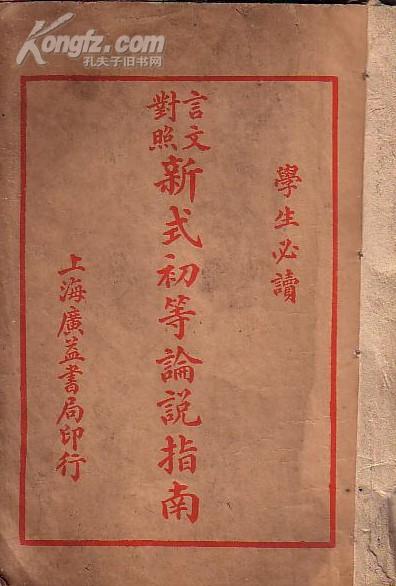 Kongfz.com
孔夫子旧书网
學生必讀
言文
對照
新式初等論説指南
上海廣益書局印行